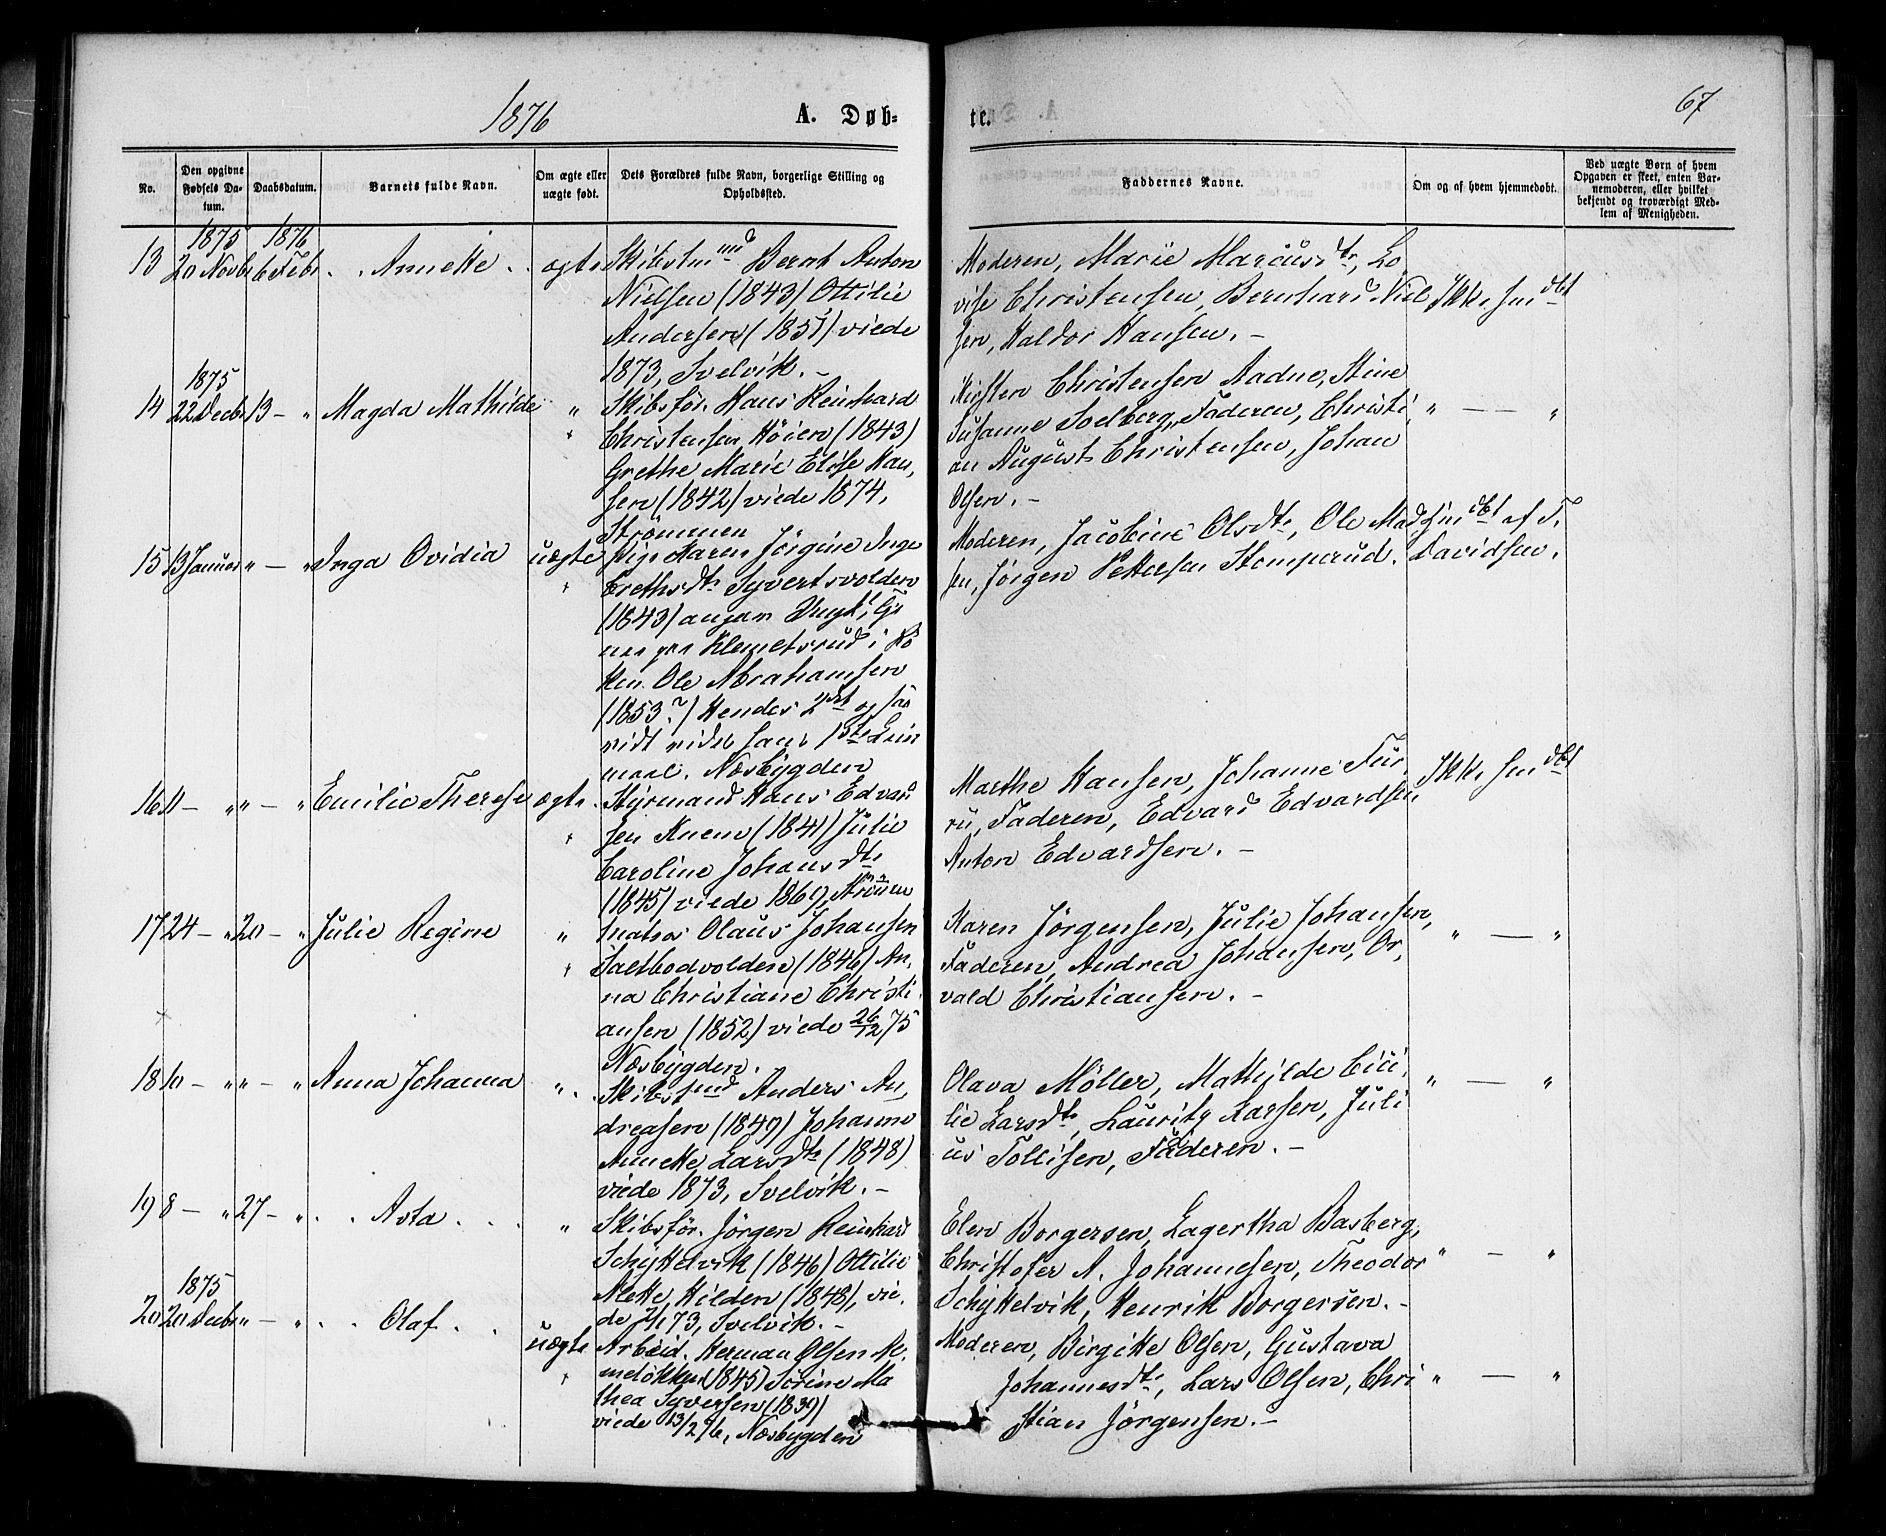 1876 A. Døb=
te. 67
No.
Den opgivne Fødsels Datum.
Daabsdatum.
Barnets fulde Navn.
Om ægte eller uægte født.
Dets Forældres fulde Navn, borgerlige Stilling og Opholdssted.
Faddernes Navne.
Om og af hvem hjemmedøbt.
Ved uægte Børn af hvem Opgaven er skeet, enten Barnemoderen, eller hvilket bekjendt og troværdigt Medlem af Menigheden.
1875 1876
13 20 Novbr 6 Febr. Annette ægte
Skibstmd Bernt Anton
Nielsen (1843) Ottilie
Andersen (1851) viede
1873, Svelvik. -
Moderen, Marie Marcusdtr, Lo,
vise Christensen, Bernhard Niel
sen, Haldor Hansen. -
Ikke hmdbt
1875
14 22 Decbr 13 - " Magda Mathilde "
Skibsför. Hans Reinhard
Christensen Höien (1843)
Grethe Marie Elise Han,
sen (1842) viede 1874,
Strömmen
Kirsten Christensen Aadne, Stine
Susanne Soelberg, Faderen, Christi,
an August Christensen, Johan
Olsen. -
" - - "
15 13 Januar " - " Inga Ovidia uægte
Pige Maren Jörgine Inge
brethsdtr Syvertsvolden
(1843)
Klemetsrud i Rö
ken Ole Abrahamsen
(1853?) Hendes 2det og saa
vidt vides hans 1ste Leier
maal. Næsbygden
Moderen, Jacobine Olsdtr, Ole Mad
sen, Jörgen Pettersen Stomperud.
hmdbt af F.
Davidsen.
16 11 - " " - " Emilie Therese ægte
Styrmand Hans Edvard
sen Knem (1841) Julie
Caroline Johansdtr
(1845) viede 1869, Strömm
Marthe Hansen, Johanne Fur,
ru, Faderen, Edvard Edvardsen,
Anton Edvardsen. -
Ikke hmdbt
17 24 - " 20 - " Julie Regine "
Matros Olaus Johansen
Saltbodvolden (1846) An,
na Christiane Christi
ansen (1852) viede 26/12 75
Næsbygden.
Karen Jörgensen, Julie Johansen,
Faderen, Andrea Johansen, Or,
vald Christiansen. -
" - "
18 10 - " " - " Anna Johanna "
Skibstmd Anders An,
dreasen (1849) Johanne
Annette Larsdtr (1848)
viede 1873, Svelvik. -
Olava Möller, Mathilde Cici,
lie Larsdtr, Lauritz Larsen, Juli
us Tollisen, Faderen. -
" - "
19 8 - " 27 - " Asta "
Skibsför. Jörgen Reinhard
Schyttelvik (1846) Ottilie
Alette Hilden (1848), vie,
de 73, Svelvik. -
Elen Borgersen, Lagertha Basberg,
Christofer A. Johannesen, Theodor
Schyttelvik, Henrik Borgersen. -
" - "
1875
20 20 Decbr " - " Olaf uægte
Arbeid. Herman Olsen
(1845) Sörine Ma
thea Syversen (1839)
viede 13/2 76, Næsbygden
Moderen, Birgitte Olsen, Gustava
Johannesdtr, Lars Olsen, Chri
stian Jörgensen. -
" - "